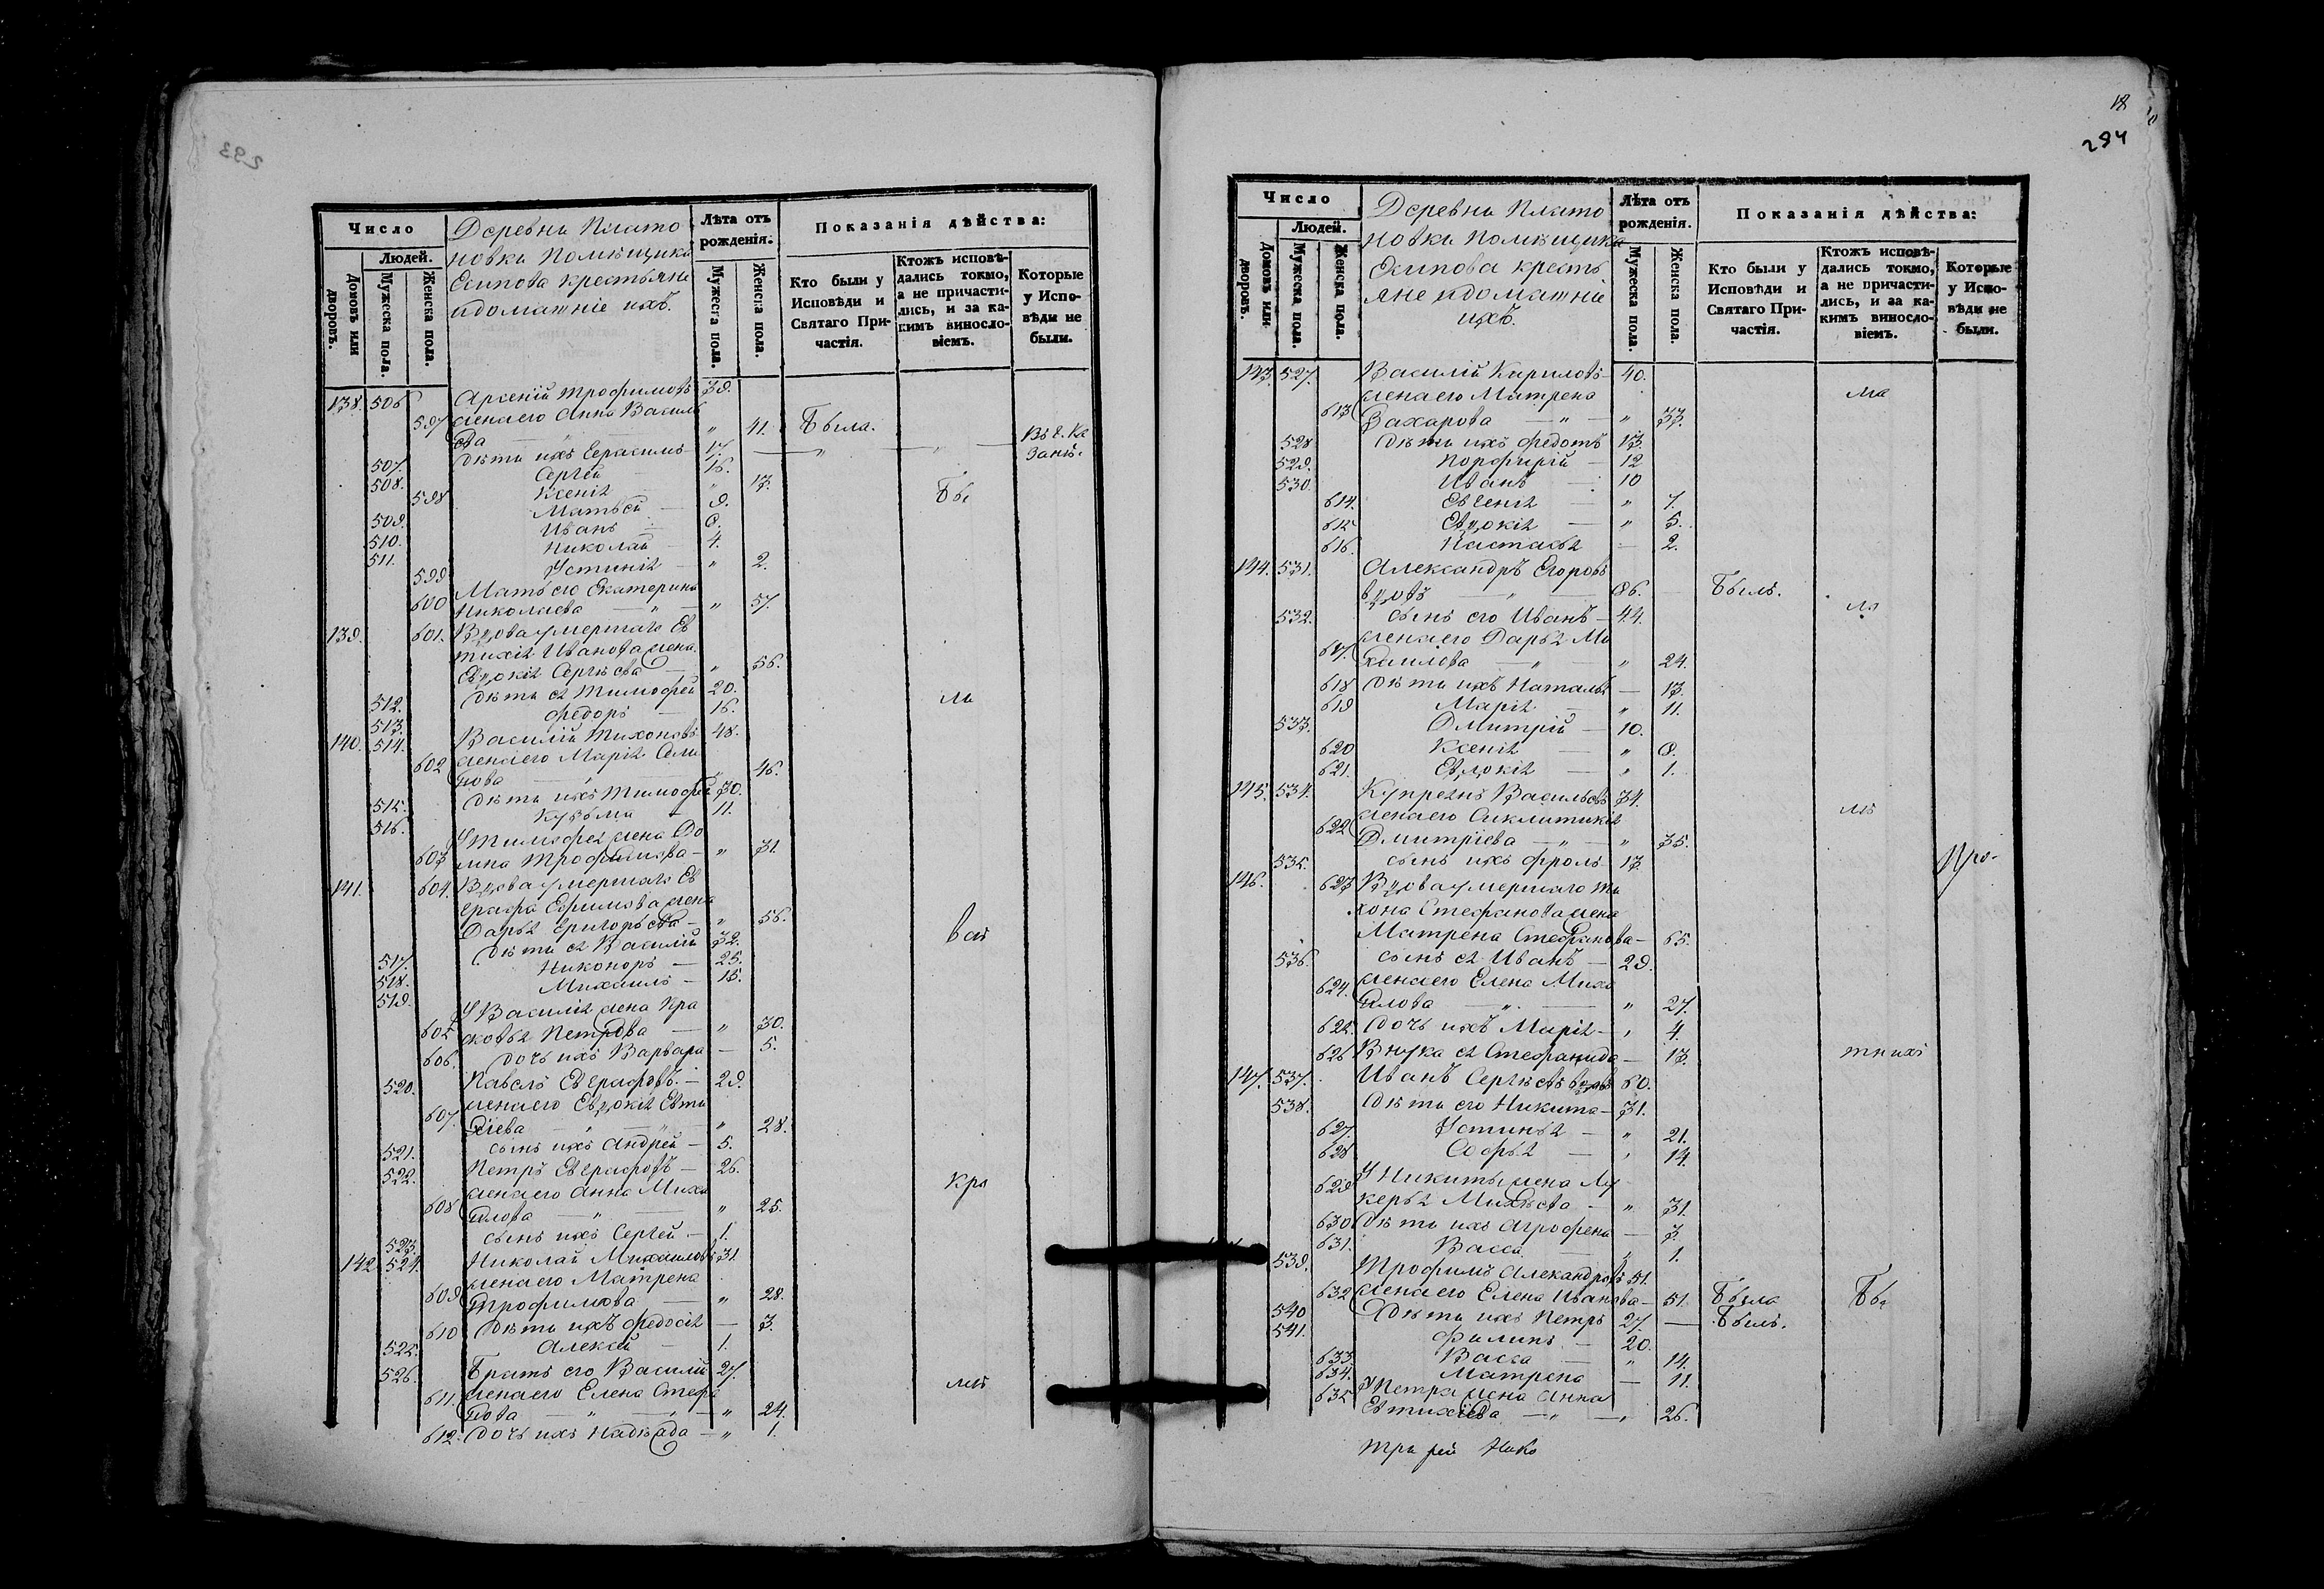 293
Число
Людей.
Домовъ или дворовъ.
Мужеска пола.
Женска пола.
Деревни Плато
новки Помѣщика
Есипова крестьяне
и домашніе ихъ.
Лѣта отъ рожденія.
Мужеска пола.
Женска пола.
Показанія дѣйства:
Кто были у Исповѣди и Святаго Причастія.
Ктожъ исповѣдались токмо, а не причастились, и за какимъ винословіемъ.
Которые у Исповѣди не были.
138. 506 Арсеній Трофимовъ 39.
597 жена его Анна Василь
ева " 41. Была.
507. дѣти ихъ Герасимъ 17. Въ г. Ка
занѣ.
508. Сергѣй 16.
598 Ксенія " 13. Бы
509. Матвѣй 9.
510. Иванъ 6.
511. Николай 4.
599 Устинія " 2.
600 Мать его Екатерина
Николаева " 57.
139. 601. Вдова умершаго Ев
тихія Иванова жена
Евдокія Сергѣева " 56.
512. дѣти ея Тимофей 20. ли
513. Федоръ 16.
140. 514. Василій Тихоновъ 48.
602 жена его Марія Семе
нова 46.
515. дѣти ихъ Тимофей 30.
516. Кузьма 11.
У Тимофея жена До
603 мна Трофимова " 31.
141. 604. Вдова умершаго Ев
графа Ефимова жена
Дарья Григорьева " 56.
517. дѣти ея Василій 32. всѣ
518. Никоноръ 25.
519. Михаилъ 15.
У Василія жена Пра
605 сковья Петрова " 30.
606. дочь ихъ Варвара 5.
520. Павелъ Евграфовъ 29.
607. жена его Евдокія Евти
хіева " 28.
521. сынъ ихъ Андрей 5.
522. Петръ Евграфовъ 26.
608 жена его Анна Миха
йлова " 25. кро
523. сынъ ихъ Сергѣй 1.
142 524. Николай Михаиловъ 31
609 жена его Матрена
Трофимова " 28.
610 дѣти ихъ Федосія 3.
525. Алексѣй 1.
526. Братъ его Василій 27.
611. жена его Елена Стефа
нова " 24. мѣ
612. дочь ихъ Надежда " 1.
18
294
Число
Людей.
Домовъ или дворовъ.
Мужеска пола.
Женска пола.
Деревни Плато
новки Помѣщика
Есипова кресть
яне и домашніе
ихъ.
Лѣта отъ рожденія.
Мужеска пола.
Женска пола.
Показанія дѣйства:
Кто были у Исповѣди и Святаго Причастія.
Ктожъ исповѣдались токмо, а не причастились, и за какимъ винословіемъ.
Которые у Исповѣди не были.
143. 527. Василій Кириловъ 40.
жена его Матрена ма
613 Захарова " 33.
528 дѣти ихъ Федотъ 13.
529. Порфирій 12
530. Иванъ 10
614. Евгенія " 7.
615 Евдокія " 5.
616. Настасья 2.
144. 531. Александръ Егоровъ
вдовъ 86. Былъ.
532. сынъ его Иванъ 44. лѣ
жена его Дарья Ми
617. хаилова " 24.
618 дѣти ихъ Наталья 13.
619 Марія " 11.
533. Дмитрій 10.
620 Ксенія " 6.
621. Евдокія " 1.
145. 534. Купреянъ Васильевъ 34.
622 жена его Сиклитикія
Дмитріева " 35.
535. сынъ ихъ Фролъ 13. Про-
146. 623 Вдова умершаго Ти
хона Стефанова жена
Матрена Стефанова 65.
536. сынъ ея Иванъ 29.
624. жена его Елена Миха
йлова " 27.
625. дочь ихъ Марія " 4.
626 Внука ея Стефанида 13. тнихъ
147. 537. Иванъ Сергѣевъ вдовъ 60.
538. дѣти его Никита 31.
627. Устинья " 21.
628 Софья " 14.
629 У Никиты жена Лу
керья Михѣева " 31.
630 дѣти ихъ Агрофена 3.
631. Васса " 1.
539. Трофимъ Александровъ 51.
632 жена его Елена Иванова 51. Была Бы
540 дѣти ихъ Петръ 27. Былъ.
541. Филипъ 20.
633. Васса " 14.
634. Матрена 11.
635 У Петра жена Анна
Евтихіева " 26.
Нико